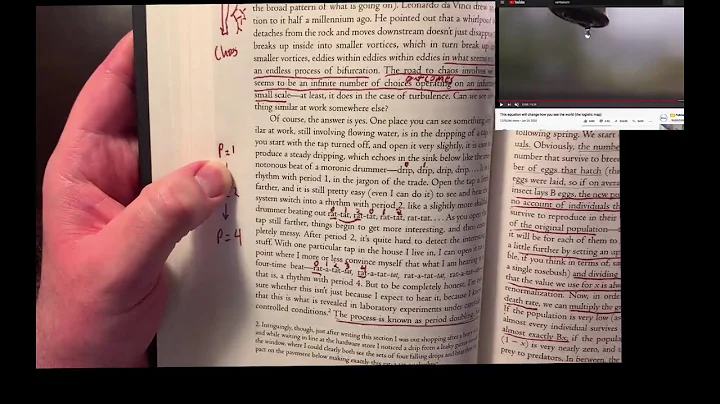 the broad pattern of what is going on). Leonardo da Vinci drew
tion to it half a millennium ago. He pointed out that a whirlpool
detaches from the rock and moves downstream doesn't just disappear
breaks up inside into smaller vortices, which in turn break up
smaller, eddies within eddies within eddies in what seems
an endless process of bifurcation. The road to chaos involves
seems to be an infinite number of choices operating on an
outcomes
small scale—at least, it does in the case of turbulence. Can we see
thing similar at work somewhere else?
Of course, the answer is yes. One place you can see something
ilar at work, still involving flowing water, is in the dripping of a tap.
you start with the tap turned off, and open it very slightly, it is easy
produce a steady dripping, which echoes in the sink below like the
notonous beat of a moronic drummer—drip, drip, drip, drip....
rhythm with period 1, in the jargon of the trade. Open the tap a
farther, and it is still pretty easy (even I can do it) to see and hear
system switch into a rhythm with period 2, like a slightly more skilled
drummer beating out rat-tat, rat-tat, rat-tat, rat-tat.... As you open
tap still farther, things begin to get more interesting, and then
pletely messy. After period 2, it's quite hard to detect the
stuff. With one particular tap in the house I live in, I can open it
point where I more or less convince myself that what I am hearing
four-time beat—rat-a-tat-tat, rat-a-tat-tat, rat-a-tat-tat,
that is, a rhythm with period 4. But to be completely honest, I'm
sure whether this isn't just because I expect to hear it, because I know
that this is what is revealed in laboratory experiments under
controlled conditions.² The process is known as period doubling,
2. Intriguingly, though, just after writing this section I was out shopping after a heavy
and while waiting in line at the hardware store I noticed a drip from a leaky gutter
the window, where I could clearly both see the sets of four falling drops and hear
pact on the pavement below making exactly this
Chaos
P=1
2
P=4
0 1
0 1 2 3 4
YouTube
This equation will change how you see the world (the logistic map)
following spring. We start
uals. Obviously, the number
number that survive to breed
ber of eggs that hatch (the
eggs were laid, so if on average
insect lays B eggs, the new
no account of individuals
survive to reproduce in their
of the original population
it will be for each of them to
a little further by setting an up
ble, if you think in terms of, say
a single rosebush) and dividing
that the value we use for x is always
renormalization. Now, in order
death rate, we can multiply the
If the population is very low (as
almost every individual survives
almost exactly Bx; if the popula
(1 − x) is very nearly zero, and
prey to predators. In between, the